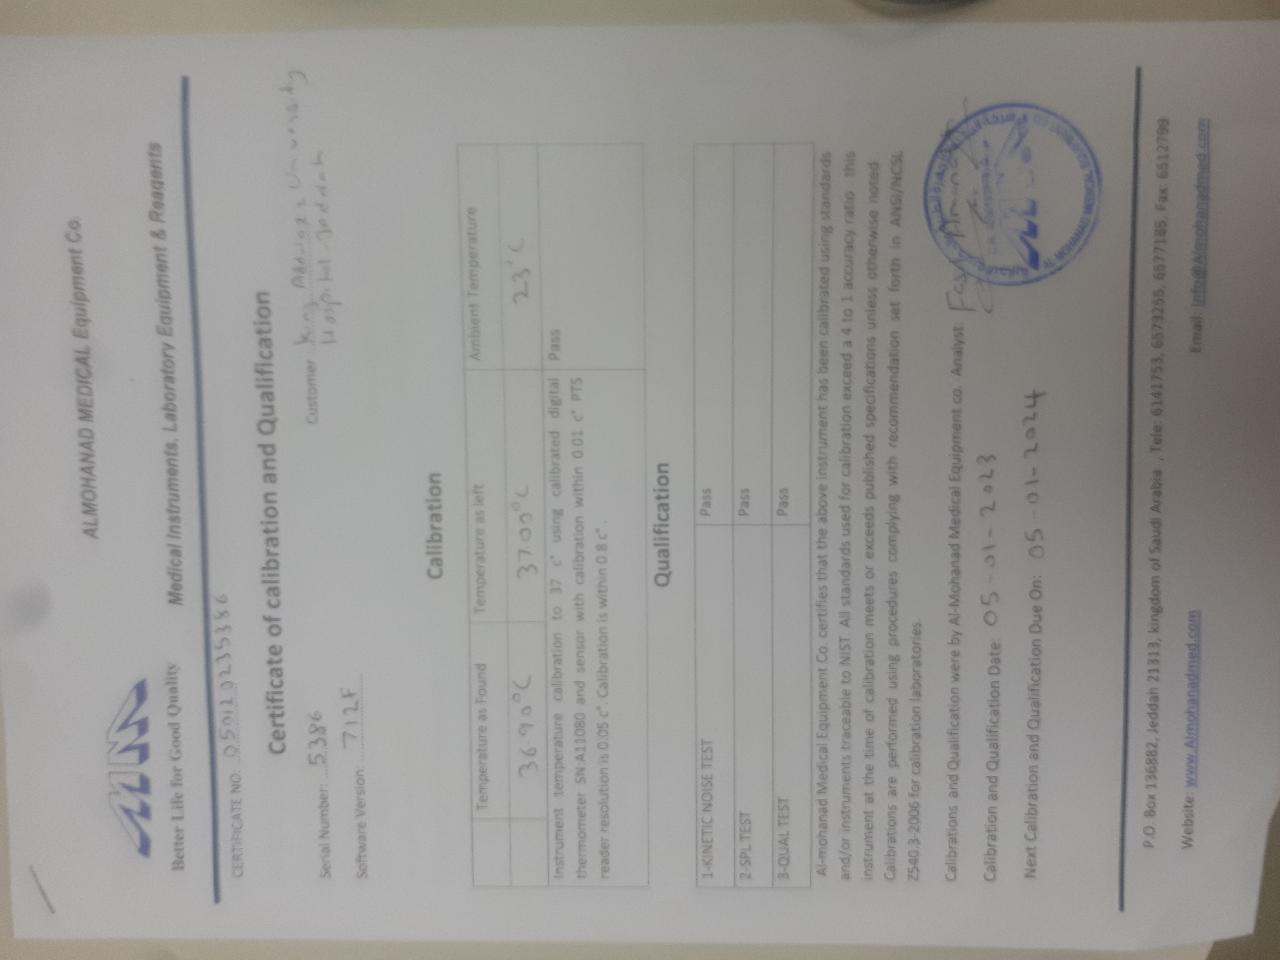 ALMOHANAD MEDICAL Equipment Co.
Better Life for Good Quality
Medical Instruments, Laboratory Equipment & Reagents
CERTIFICATE NO: 050120235386
Certificate of calibration and Qualification
Serial Number: 5386
Customer: King Abdulaziz University
Hospital-Jeddah
Software Version: 712F
Calibration
Temperature as Found Temperature as left Ambient Temperature
36.90°C 37.00°C 23°C
Instrument temperature calibration to 37 c° using calibrated digital Pass
thermometer SN:A11080 and sensor with calibration within 0.01 c° PTS
reader resolution is 0.05 c°. Calibration is within 0.8 c°.
Qualification
1-KINETIC NOISE TEST Pass
2-SPL TEST Pass
3-QUAL TEST Pass
Al-mohanad Medical Equipment Co. certifies that the above instrument has been calibrated using standards
and/or instruments traceable to NIST. All standards used for calibration exceed a 4 to 1 accuracy ratio this
instrument at the time of calibration meets or exceeds published specifications unless otherwise noted
Calibrations are performed using procedures complying with recommendation set forth in ANSI/NCSL
Z540.3-2006 for calibration laboratories.
Calibrations and Qualification were by Al-Mohanad Medical Equipment co. Analyst:
Calibration and Qualification Date: 05-01-2023
Next Calibration and Qualification Due On: 05-01-2024
AL MOHANAD MEDICAL EQUIPMENT CO
P.O. Box 136882, Jeddah 21313, kingdom of Saudi Arabia , Tele: 6141753, 6573255, 6577185, Fax: 6512799
Website: www.Almohanadmed.com Email: Info@Almohanadmed.com